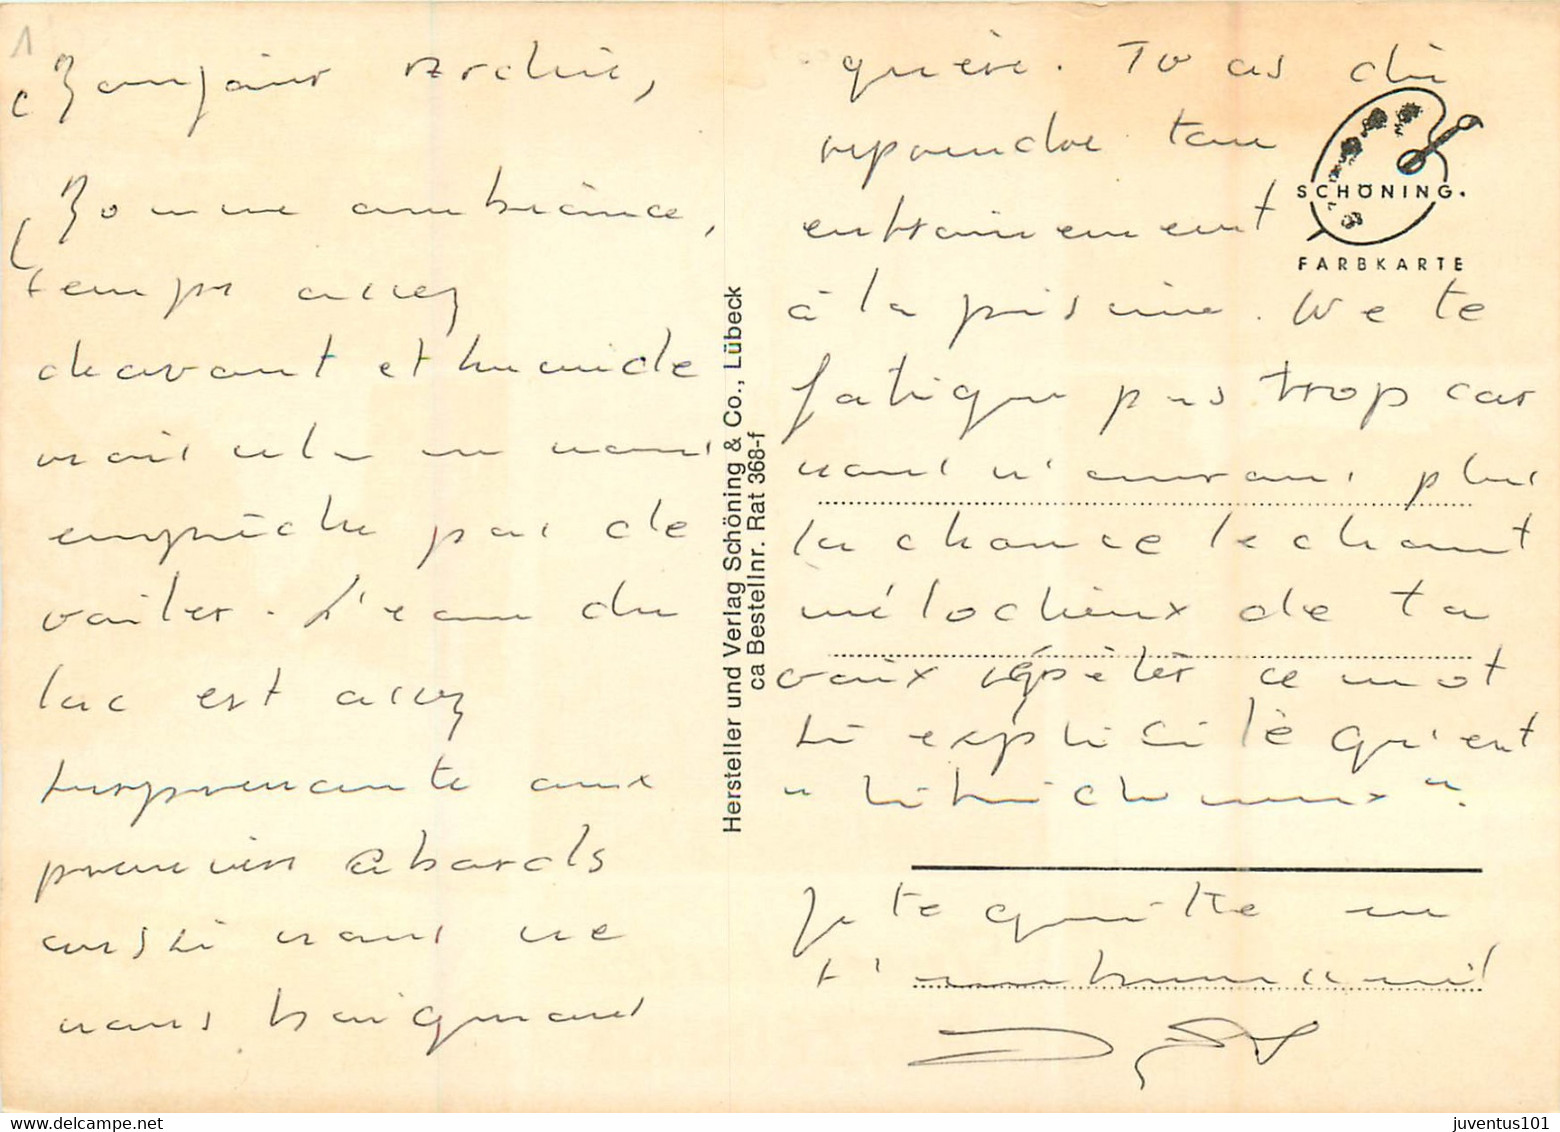 1
Bonjour Archie,
Bonne ambiance,
temps assez
chavant et humide
mais cela ne nous
empêche pas de
voiler. L'eau du
lac est assez
surprenante aux
premiers abords
aussi nous ne
nous baignons
guère. Tu as dû
reprendre ton
entrainement
à la piscine. Ne te
fatigue pas trop car
nous n'aurons plus
la chance le chant
mélodieux de ta
voix répéter ce mot
si explicite qu'est
" ".
Je te quitte en
t'
SCHÖNING.
FARBKARTE
Hersteller und Verlag Schöning & Co., Lübeck
ca Bestellnr. Rat 368-f
juventus101